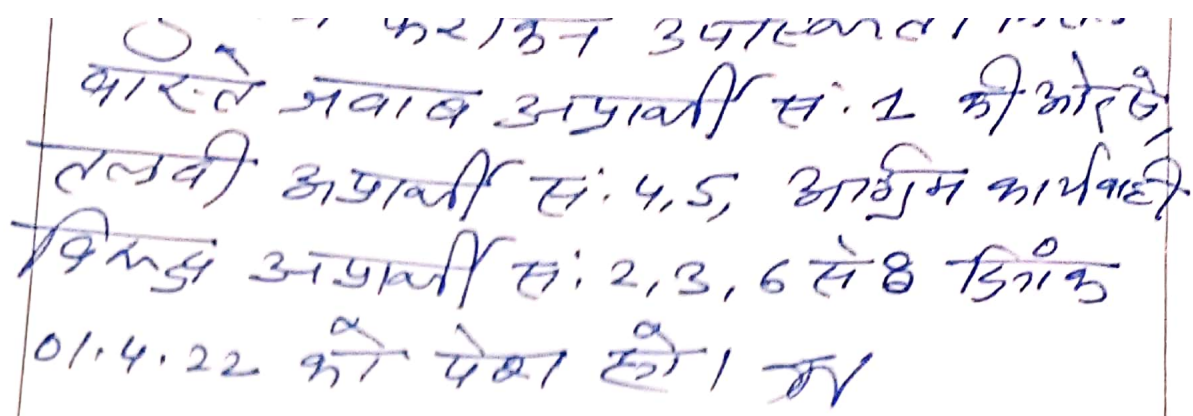 फरीकन उपस्थित।
वास्ते जवाब अप्रार्थी सं. 1 की ओर से,
तलवी अप्रार्थी सं. 4,5, आग्रिम कार्यवाही
विरूद्ध अप्रार्थी सं. 2,3,6 से 8 दिनांक
01.4.22 को पेश हो।